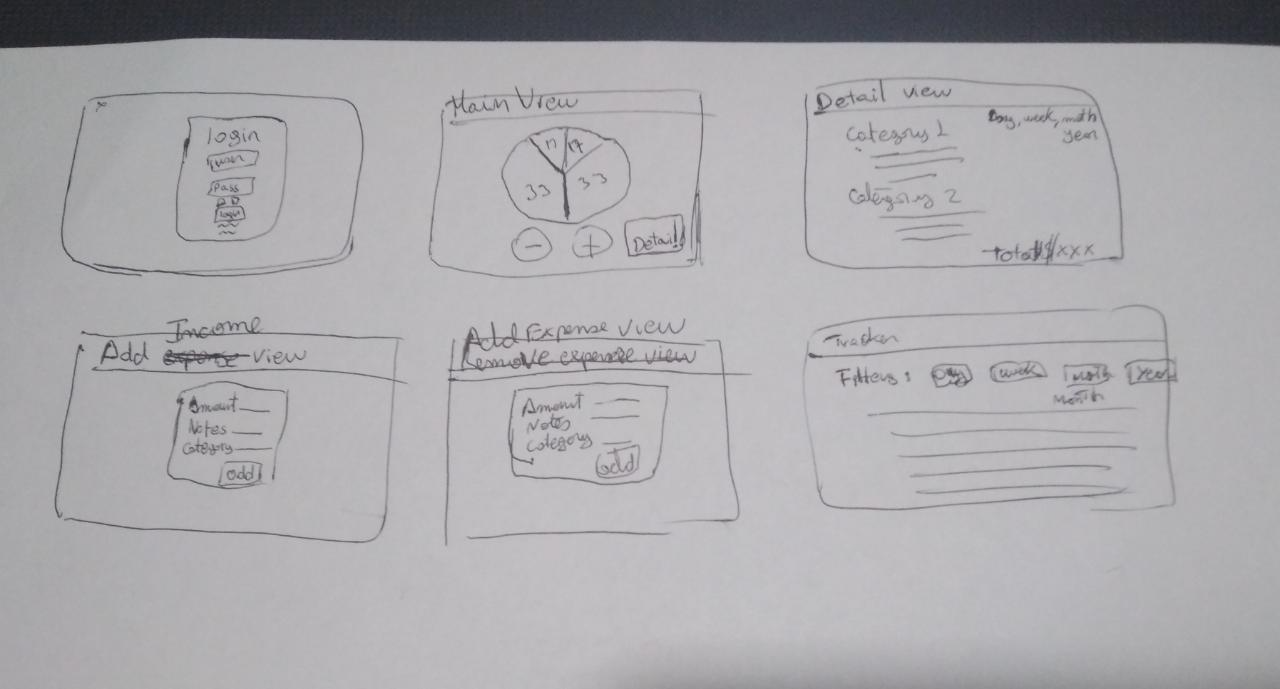 login
user
Pass
login
Main View
17 17
33 33
- +
Detail
Detail view
Day, week, moth
year
Category 1
Category 2
Total $ xxx
Income
Add expense view
Amount
Notes
Category
add
Add Expense view
Remove expense view
Amount
Notes
Category
add
Tracker
Filters: Day week Moth year
Month